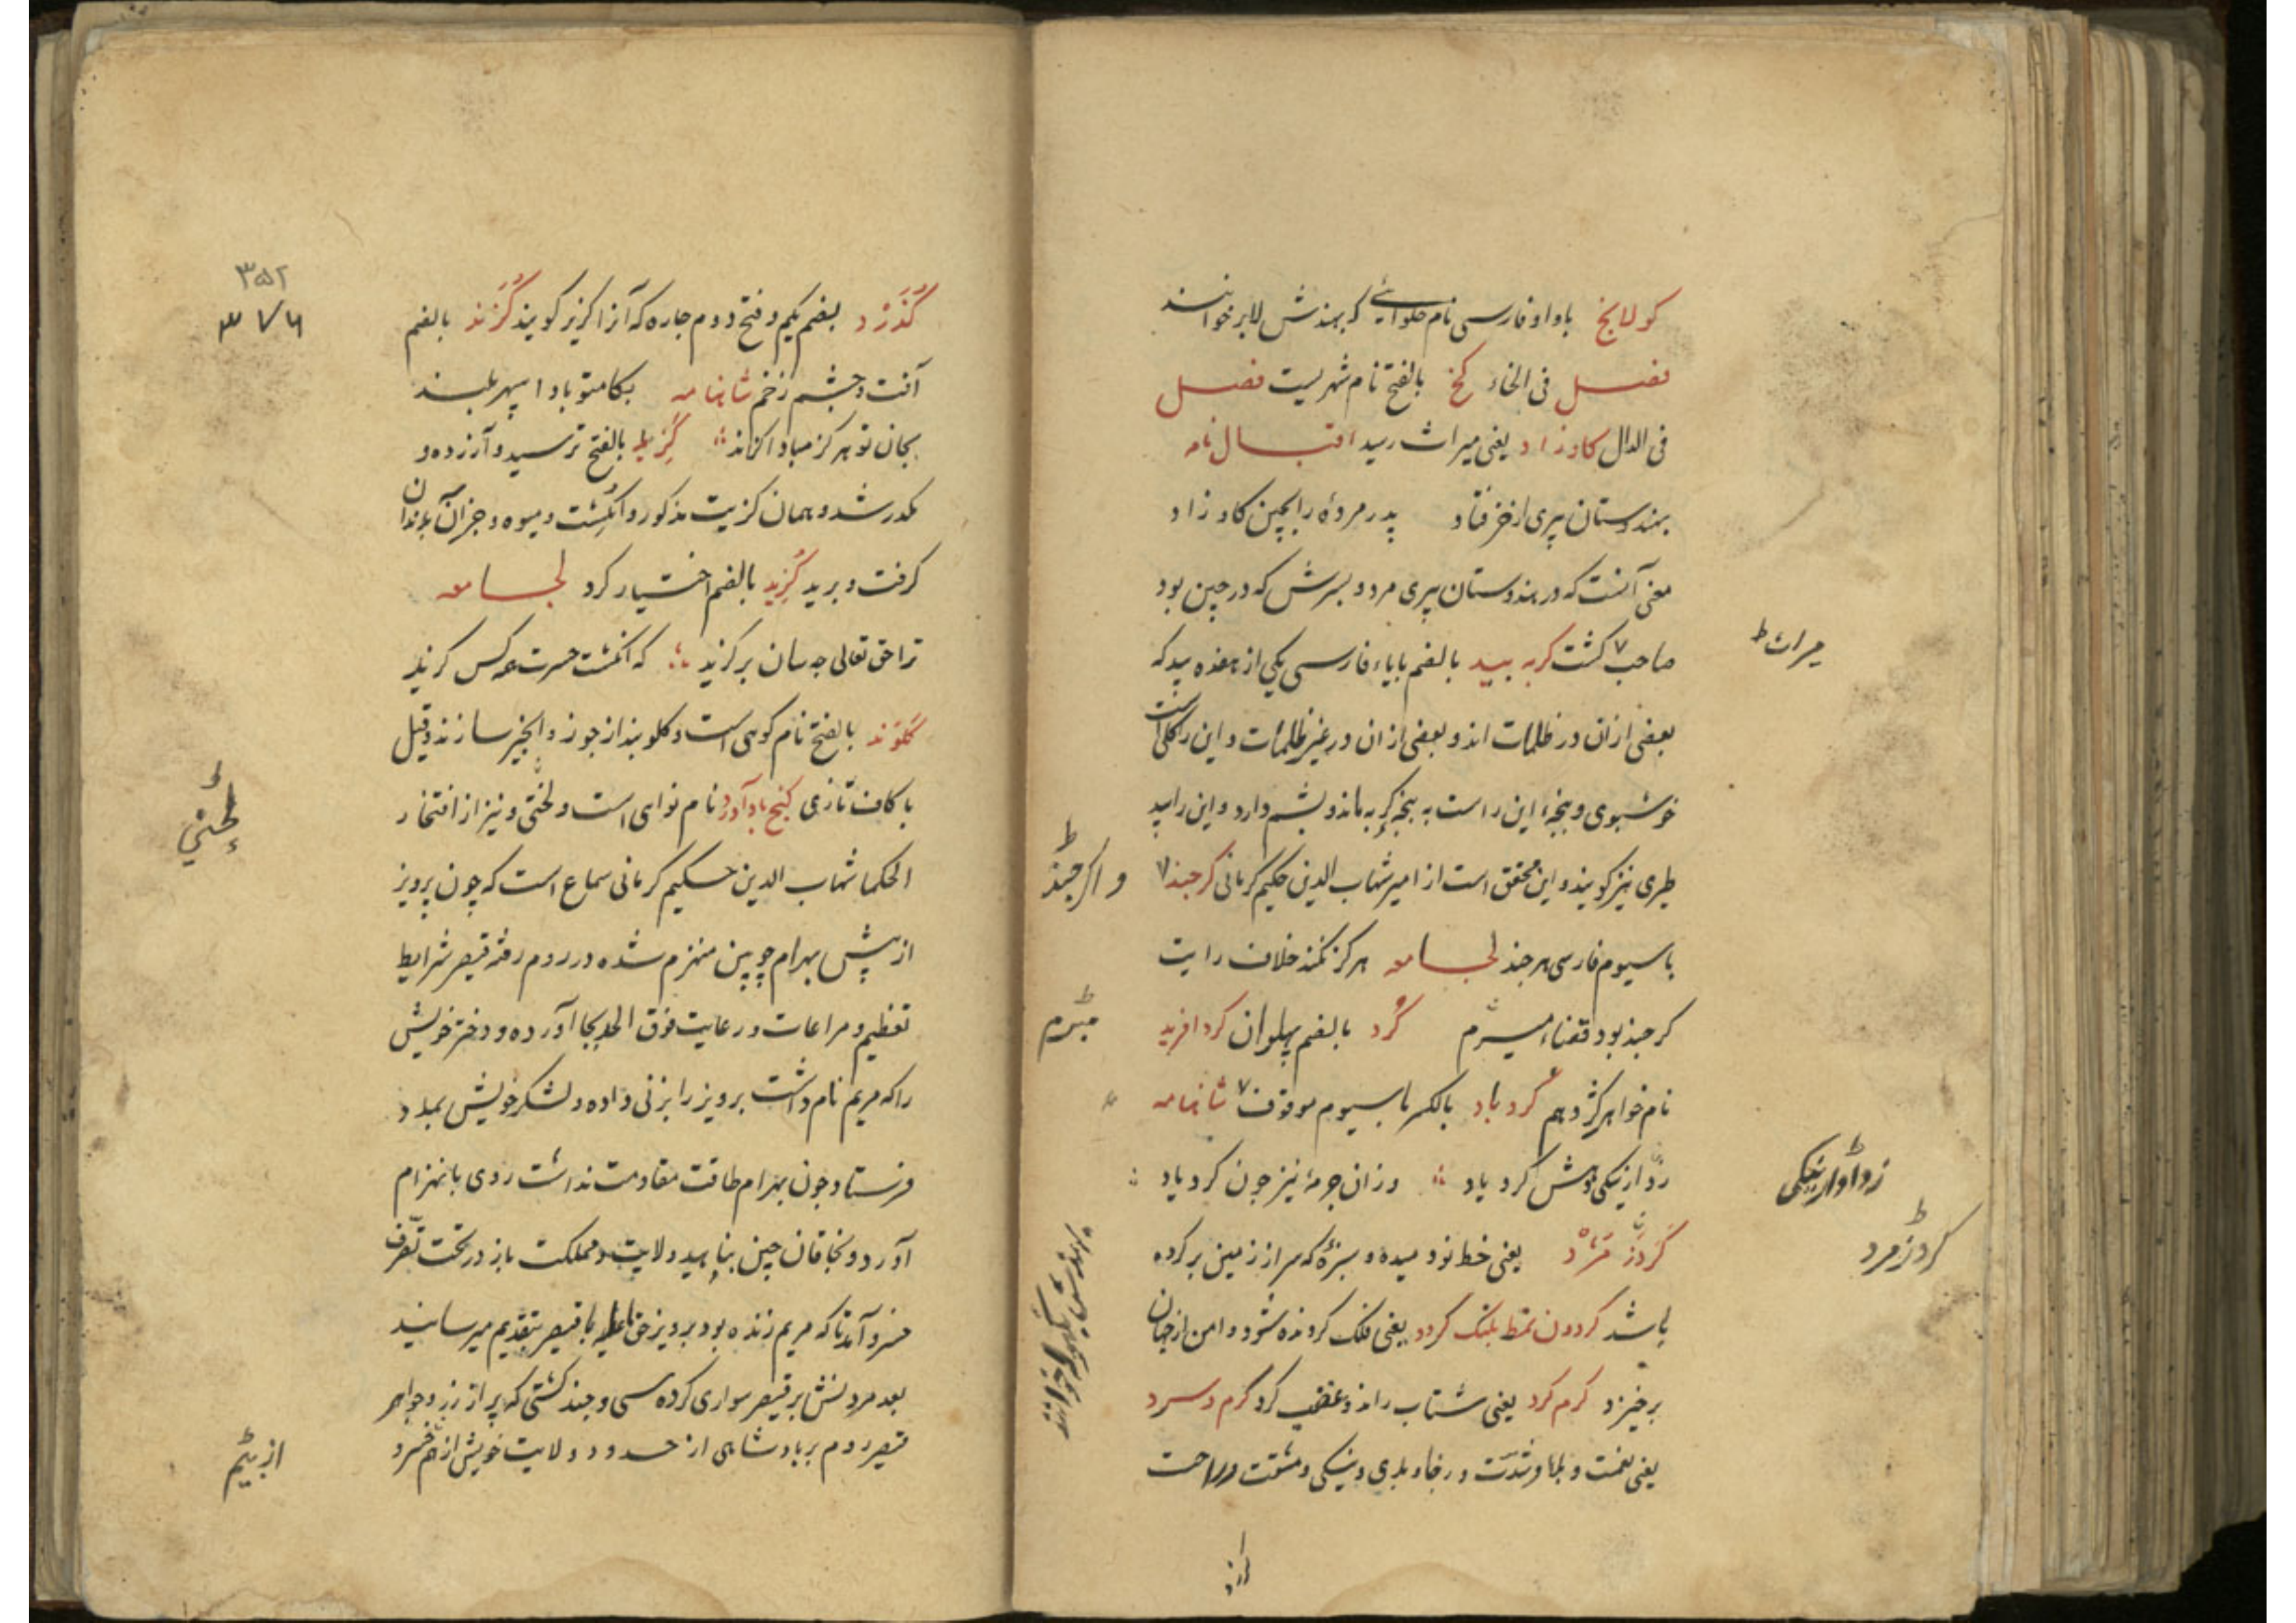 کولانج باواو فارسی نام حلوائی که بهندش لابر خوانند
فصل فی الخاء کخ بالفتح نام شهریست فصل
فی الدال کاو زاد یعنی میراث رسید اقبال نامه
بهندوستان پیری از خر فتاد پدر مردۀ را بچین کاو زاد
معنی آنست که در هندوستان پیری مرد و پسرش که در چین بود
صاحب ۷ کشت کربه بید بالضم بابای فارسی یکی از هفده بید که
میراث ط
بعضی ازان در ظلمات اند و بعضی ازان در غیر ظلمات و این را کلی است
خوشبوی و پنجۀ این راست به پنجۀ کربه ماند و پشم دارد و این را بید
طبری نیز کویند و این محقق است از امیر شهاب الدین حکیم کرمانی کرچند ۷
و اکر چند ط
باسیوم فارسی هر چند لجامعه هرکز نکند خلاف رایت
کر چند بود قضاء مبرم کُرد بالضم پهلوان کرد افرید
مبرم ط
نام خواهر کژدهم کرد باد بالکسر باسیوم موقوف ۷ شاهنامه
کرد باد وزان چرمۀ نیز چون کرد باد
کرد زمرد یعنی خط نو دمیده و سبزۀ که سر از زمین بر کرده
کرد زمرد ط
باشد کردون نمط پلنک کردد یعنی فلک کردنده شود و امن از جهان
برخیزد کرم کرد یعنی شتاب راند و غضب کرد کرم و سرد
یعنی نعمت و بلا و شدت و رخا و بدی و نیکی و مشقت و راحت
۳۵۲
۳۷۶
کُذَرد بضم یکم و فتح دوم چاره که آنرا کزیر کویند کزند بالضم
آفت و چشم زخم شاهنامه بکام تو بادا سپهر بلند
بجان تو هرکز مبادا کزند کزید بالفتح ترسید و آزرده و
مکدر شد و همان کزیت مذکور و انکشت و میوه و جز آن بدندان
کرفت و برید کُزید بالضم اختیار کرد لجامعه
ترا حق تعالی چه سان برکزید که انکشت حسرت همه کس کزید
کلوند بالفتح نام کوهی است و کلوبند از جوز و انجیر سازند و قیل
با کاف تازی کنج بادآورد نام نوای است و لحنی و نیز از افتخار
لحنی
الحکما شهاب الدین حکیم کرمانی سماع است که چون پرویز
از پیش بهرام چوبین منهزم شده در روم رفته قیصر شرایط
تعظیم و مراعات و رعایت فوق الحد بجا آورده و دختر خویش
را که مریم نام داشت پرویز را بزنی داده و لشکر خویش بمدد
فرستاد چون بهرام طاقت مقاومت نداشت روی بانهزام
آورد و بخاقان چین پناهید ولایت و مملکت باز در تحت تصرف
خسرو آمد تا که مریم زنده بود پرویز با قیصر بتقدیم میرسانید
بعد مردنش بر قیصر سواری کرده سی و چند کشتی که پر از زر و جواهر
قیصر روم بر بادشاهی از حدود ولایت خویش از خسرو
از بیم ط